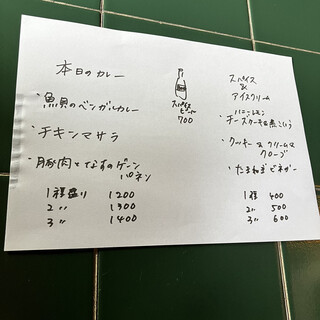 本日のカレー
・魚貝のベンガルカレー
・チキンマサラ
・豚肉となすのゲーン
パネン
1種盛り 1200
2 〃 1300
3 〃 1400
スパイス
ビール
700
スパイス
&
アイスクリーム
ハニーレモン
・チーズクーヘン
・クッキー&クリーム&
クローブ
・たまねぎビネガー
1種 400
2〃 500
3〃 600